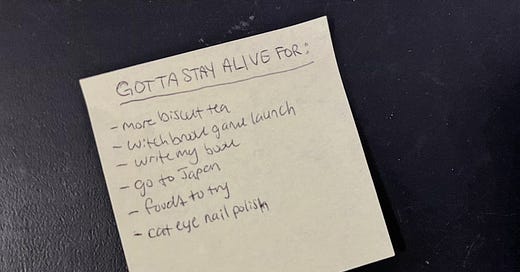 GOTTA STAY ALIVE FOR:
- more biscuit tea
- witchbrook game launch
- write my book
- go to Japan
- foods to try
- cat eye nail polish